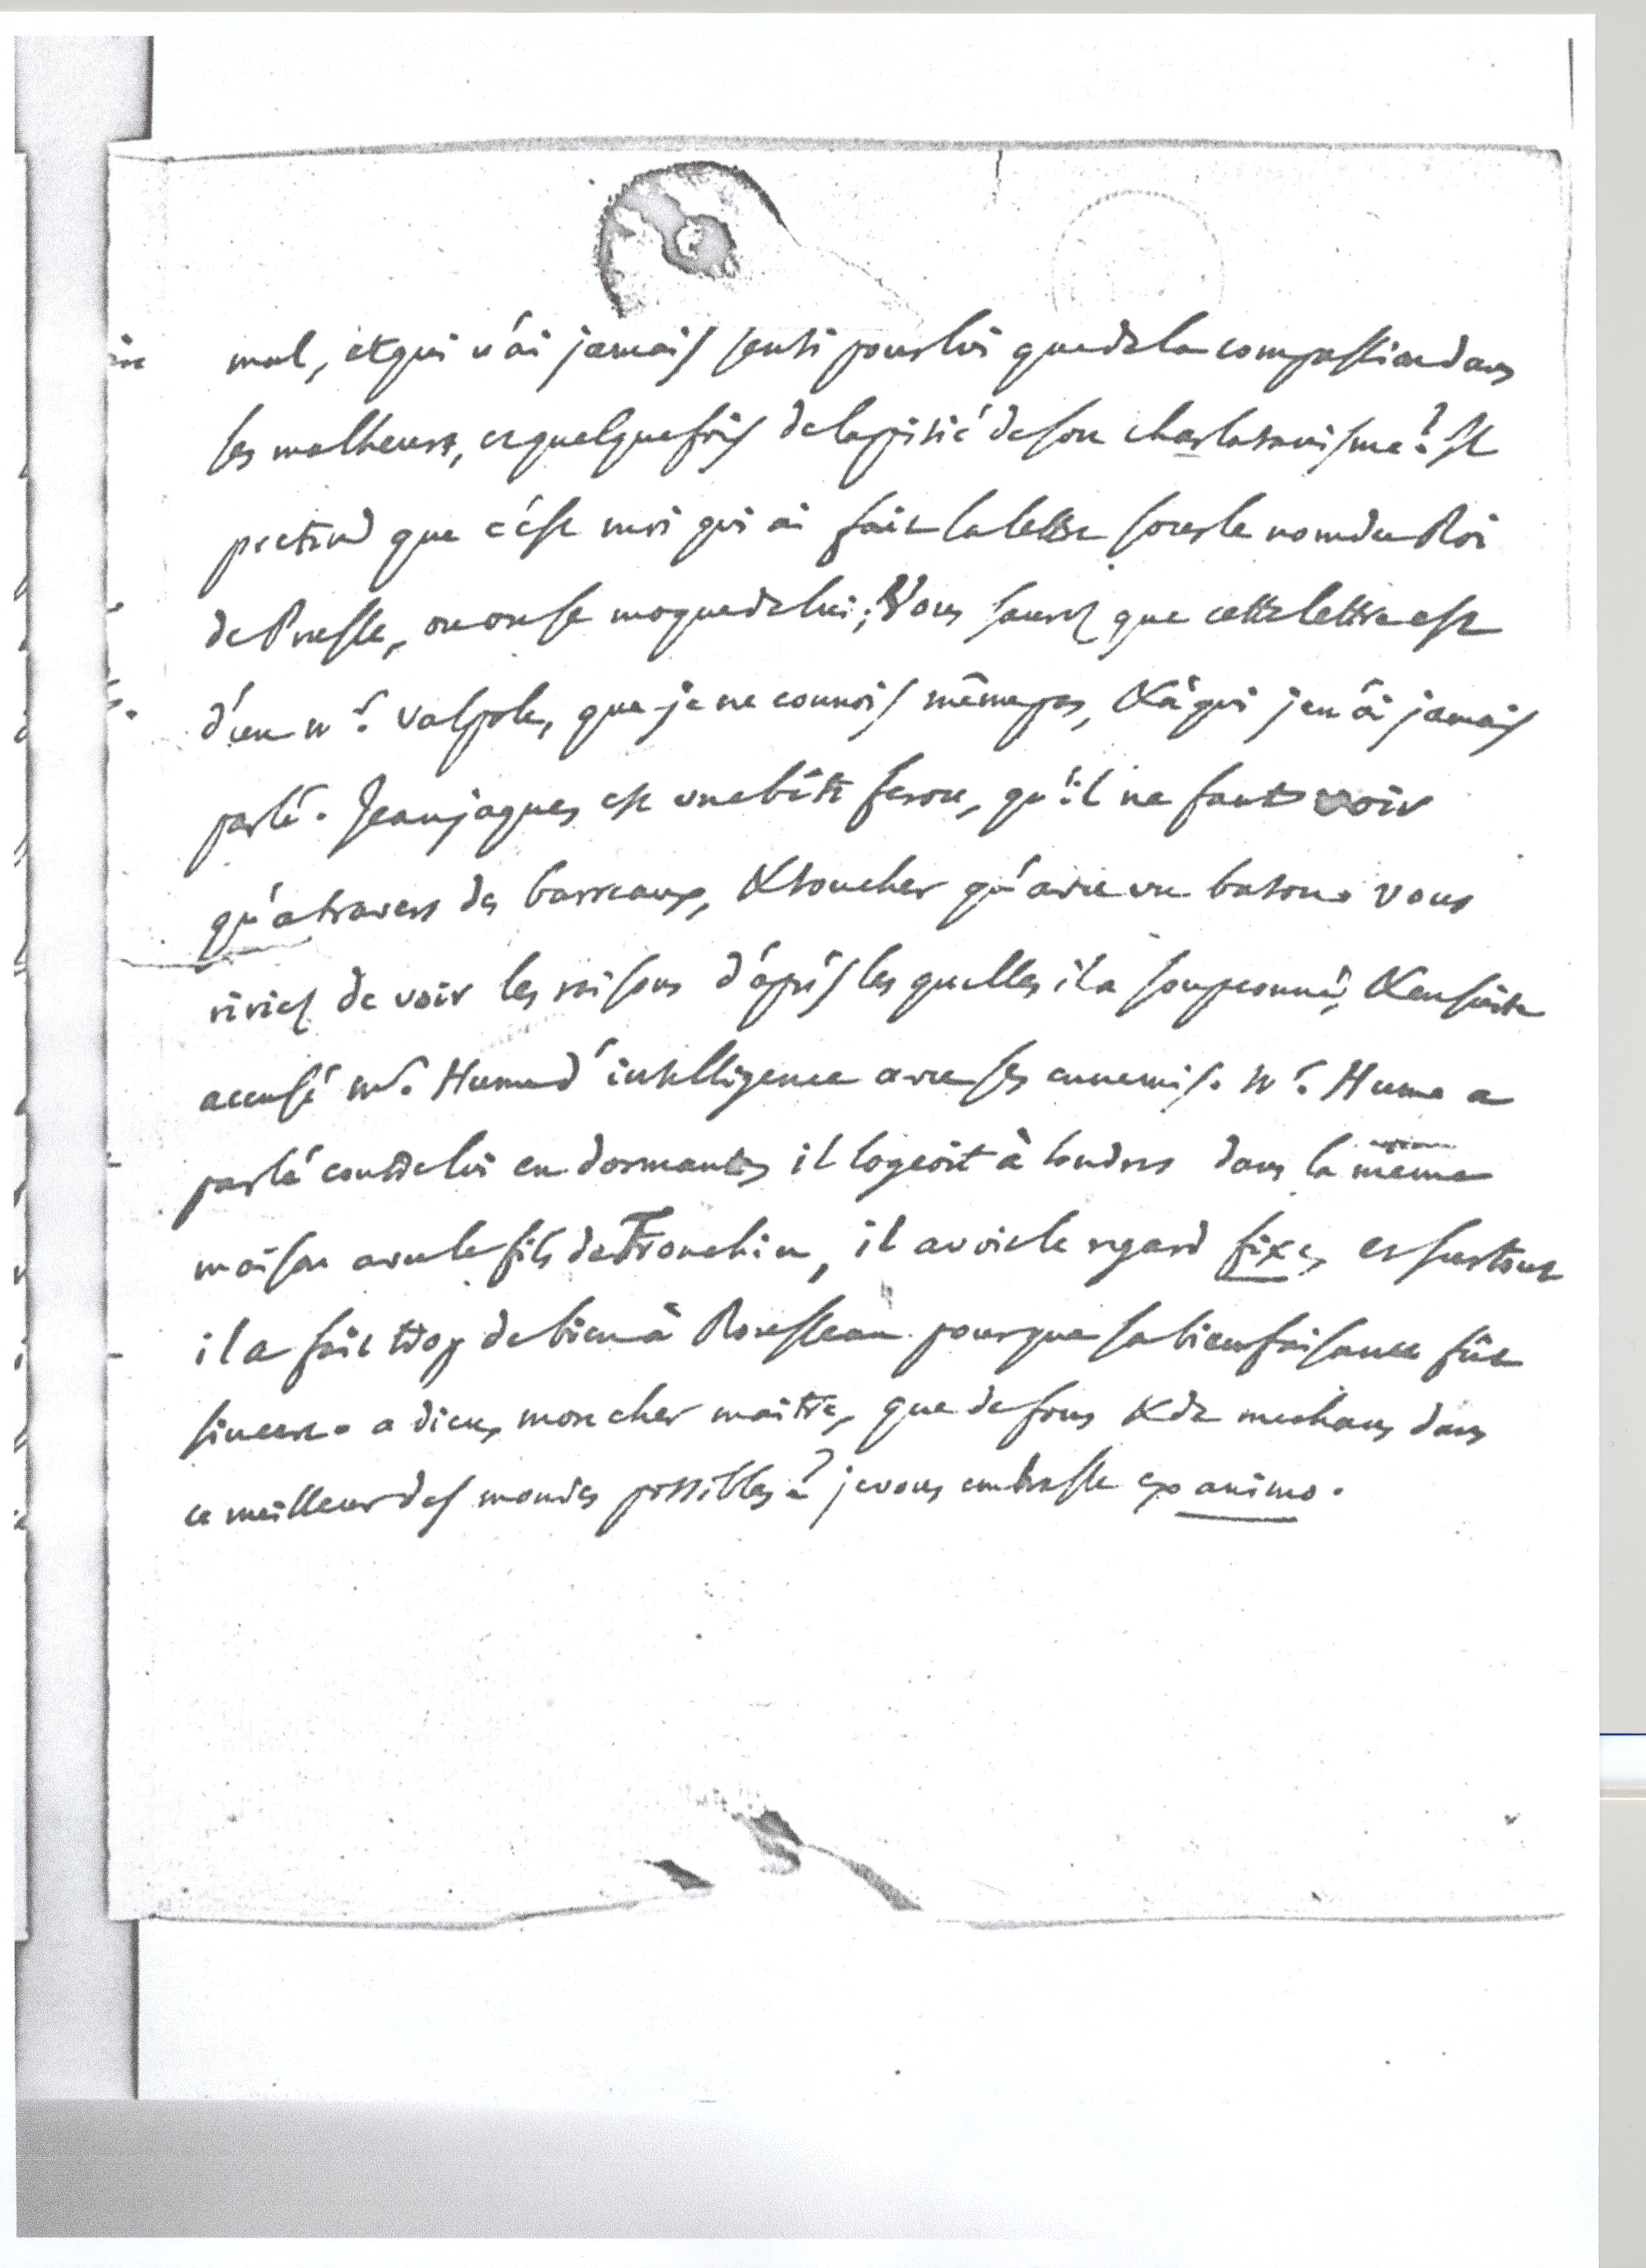 mal, et qui n'ai jamais senti pour lui que de la compassion dans
ses malheurs, et quelquefois de la pitié de son charlatanisme? Il
pretend que c'est moi qui ai fait la lettre sous le nom du Roi
de Prusse, où on se moque de lui; Vous saurez que cette lettre est
d'un Mr. Valpole, que je ne connois même pas, & à qui je n'ai jamais
parlé. Jean jaques est une bête feroce, qu'il ne faut voir
qu'a travers des barreaux, & toucher qu'avec un baton. vous
ririez de voir les raisons d'après lesquelles il a soupçonné, & ensuite
accusé Mr. Hume d'intelligence avec ses ennemis. Mr. Hume a
parlé contre lui en dormant, il logeoit à Londres dans la même
maison avec le fils de Tronchin, il avoit le regard fixe, et surtout
il a fait trop de bien à Rousseau pour que sa bienfaisance fût
sincere. adieu, mon cher maitre, que de fous & de mechans dans
ce meilleur des mondes possibles? je vous embrasse ex animo.